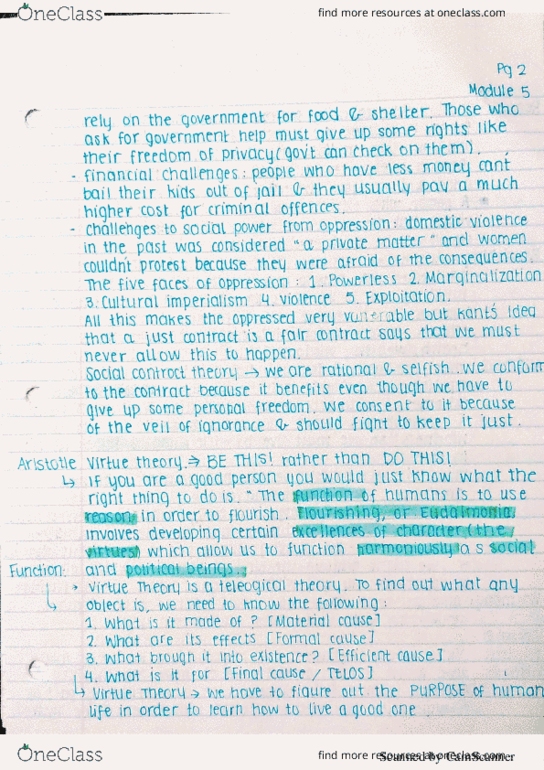 OneClass
find more resources at oneclass.com
Pg 2
Module 5
rely on the government for food & shelter. Those who
ask for government help must give up some rights like
their freedom of privacy (gov't can check on them).
- financial challenges: people who have less money cant
bail their kids out of jail & they usually pay a much
higher cost for criminal offences.
- challenges to social power from oppression: domestic violence
in the past was considered "a private matter" and women
couldn't protest because they were afraid of the consequences.
The five faces of oppression: 1. Powerless 2. Marginalization
3. Cultural imperialism 4. violence 5. Exploitation.
All this makes the oppressed very vulnerable but Kant's idea
that a just contract is a fair contract says that we must
never allow this to happen.
Social contract theory → we are rational & selfish. we conform
to the contract because it benefits even though we have to
give up some personal freedom. we consent to it because
of the veil of ignorance & should fight to keep it just.
Aristotle Virtue theory → BE THIS! rather than DO THIS!
↳ If you are a good person you would just know what the
right thing to do is. "The function of humans is to use
reason, in order to flourish. Flourishing, or Eudaimonia,
involves developing certain excellences of character (the
virtues) which allow us to function harmoniously as social
Function: and political beings.
Virtue Theory is a teleogical theory. To find out what any
object is, we need to know the following:
1. What is it made of? [Material cause]
2. What are its effects [Formal cause]
3. What brough it into existence? [Efficient cause]
4. What is it for [Final cause / TELOS]
↳ Virtue Theory → we have to figure out the PURPOSE of human
life in order to learn how to live a good one
OneClass
find more resources at oneclass.com
Scanned by CamScanner